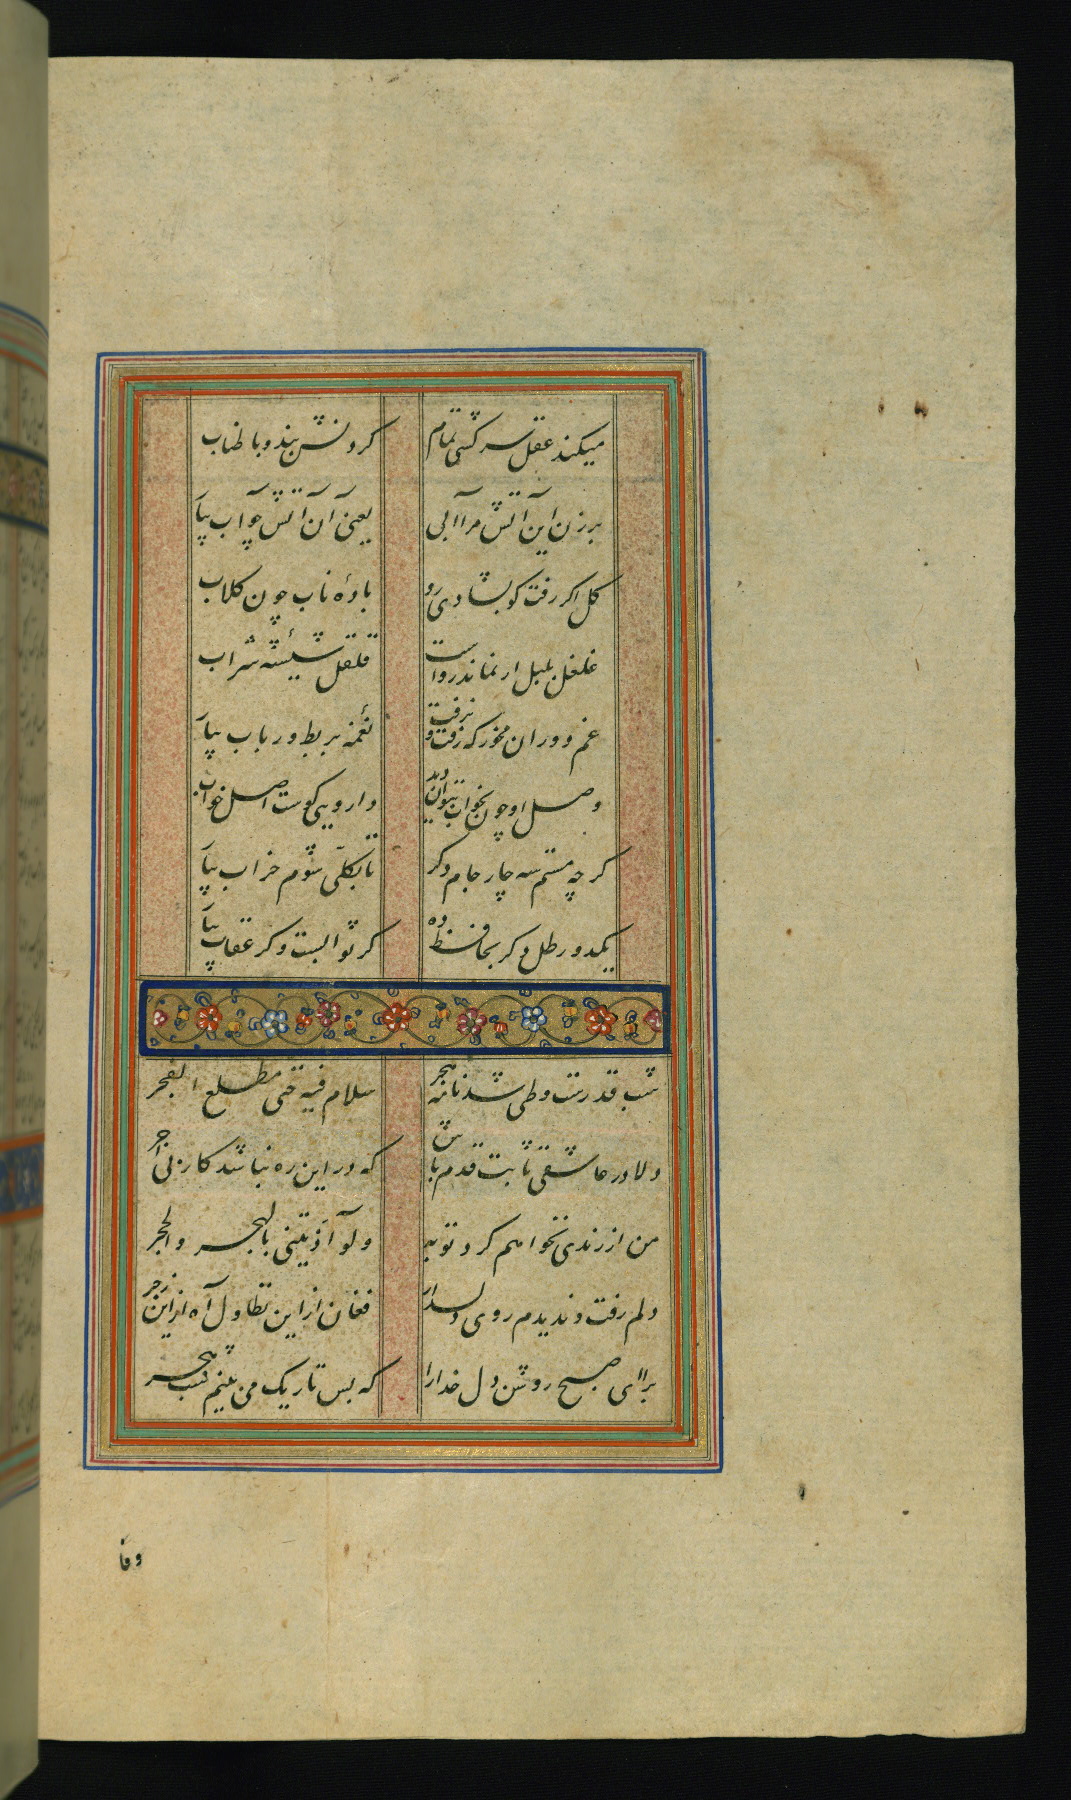 میکند عقل سرکشی تمام کردنش بند و با طناب
بر زن این آتش مرا آبی یعنی آن آتش چو آب بیآ
کل اکر رفت کو بشادی رو باده ناب چون کلاب
غلغل بلبل ار نماند رواست قلقل شیشه شراب
غم دوران مخور که رفت و نرفت نغمهٔ بربط و رباب بیآ
وصل او چون بخواب نتوان دید دارویی کوست اصل خواب
کرچه مستم سه چار جام دکر تا بکلی شوم خراب بیآ
یکدو رطل دکر بحافظ ده کر ثوابست وکر عقاب بیآ
شب قدرست و طی شد نامه هجر سلام فیه حتی مطلع الفجر
دلا در عاشقی ثابت قدم باش که در این ره نباشد کار بی اجر
من از رندی نخواهم کرد توبه ولو آذیتنی بالهجر والحجر
دلم رفت و ندیدم روی دلدار فغان از این تطاول آه از این زجر
برآی صبح روشن دل خدارا که بس تاریک می بینم شب هجر
وفا